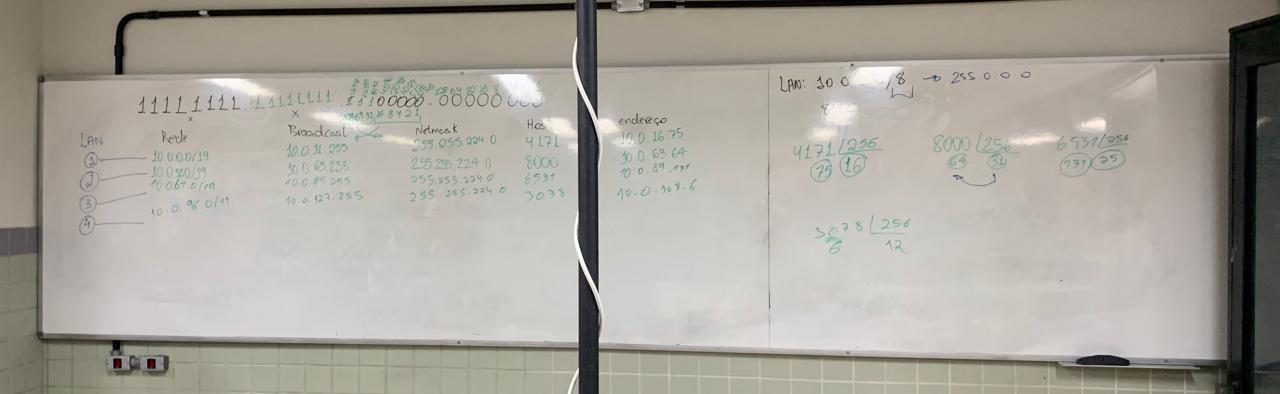 11111111.11111111.11100000.00000000
16 8 4 2 1
LAN Rede Broadcast Netmask Host endereço
1 10.0.0.0/19 10.0.31.255 255.255.224.0 4171 10.0.16.75
2 10.0.32.0/19 10.0.63.255 255.255.224.0 8000 10.0.63.64
3 10.0.64.0/19 10.0.95.255 255.255.224.0 6531 10.0.89.131
4 10.0.96.0/19 10.0.127.255 255.255.224.0 3078 10.0.108.6
LAN: 10.0 /8 → 255.0.0.0
8
4171 256
75 16
8000 256
64 31
6531 256
131 25
3078 256
6 12